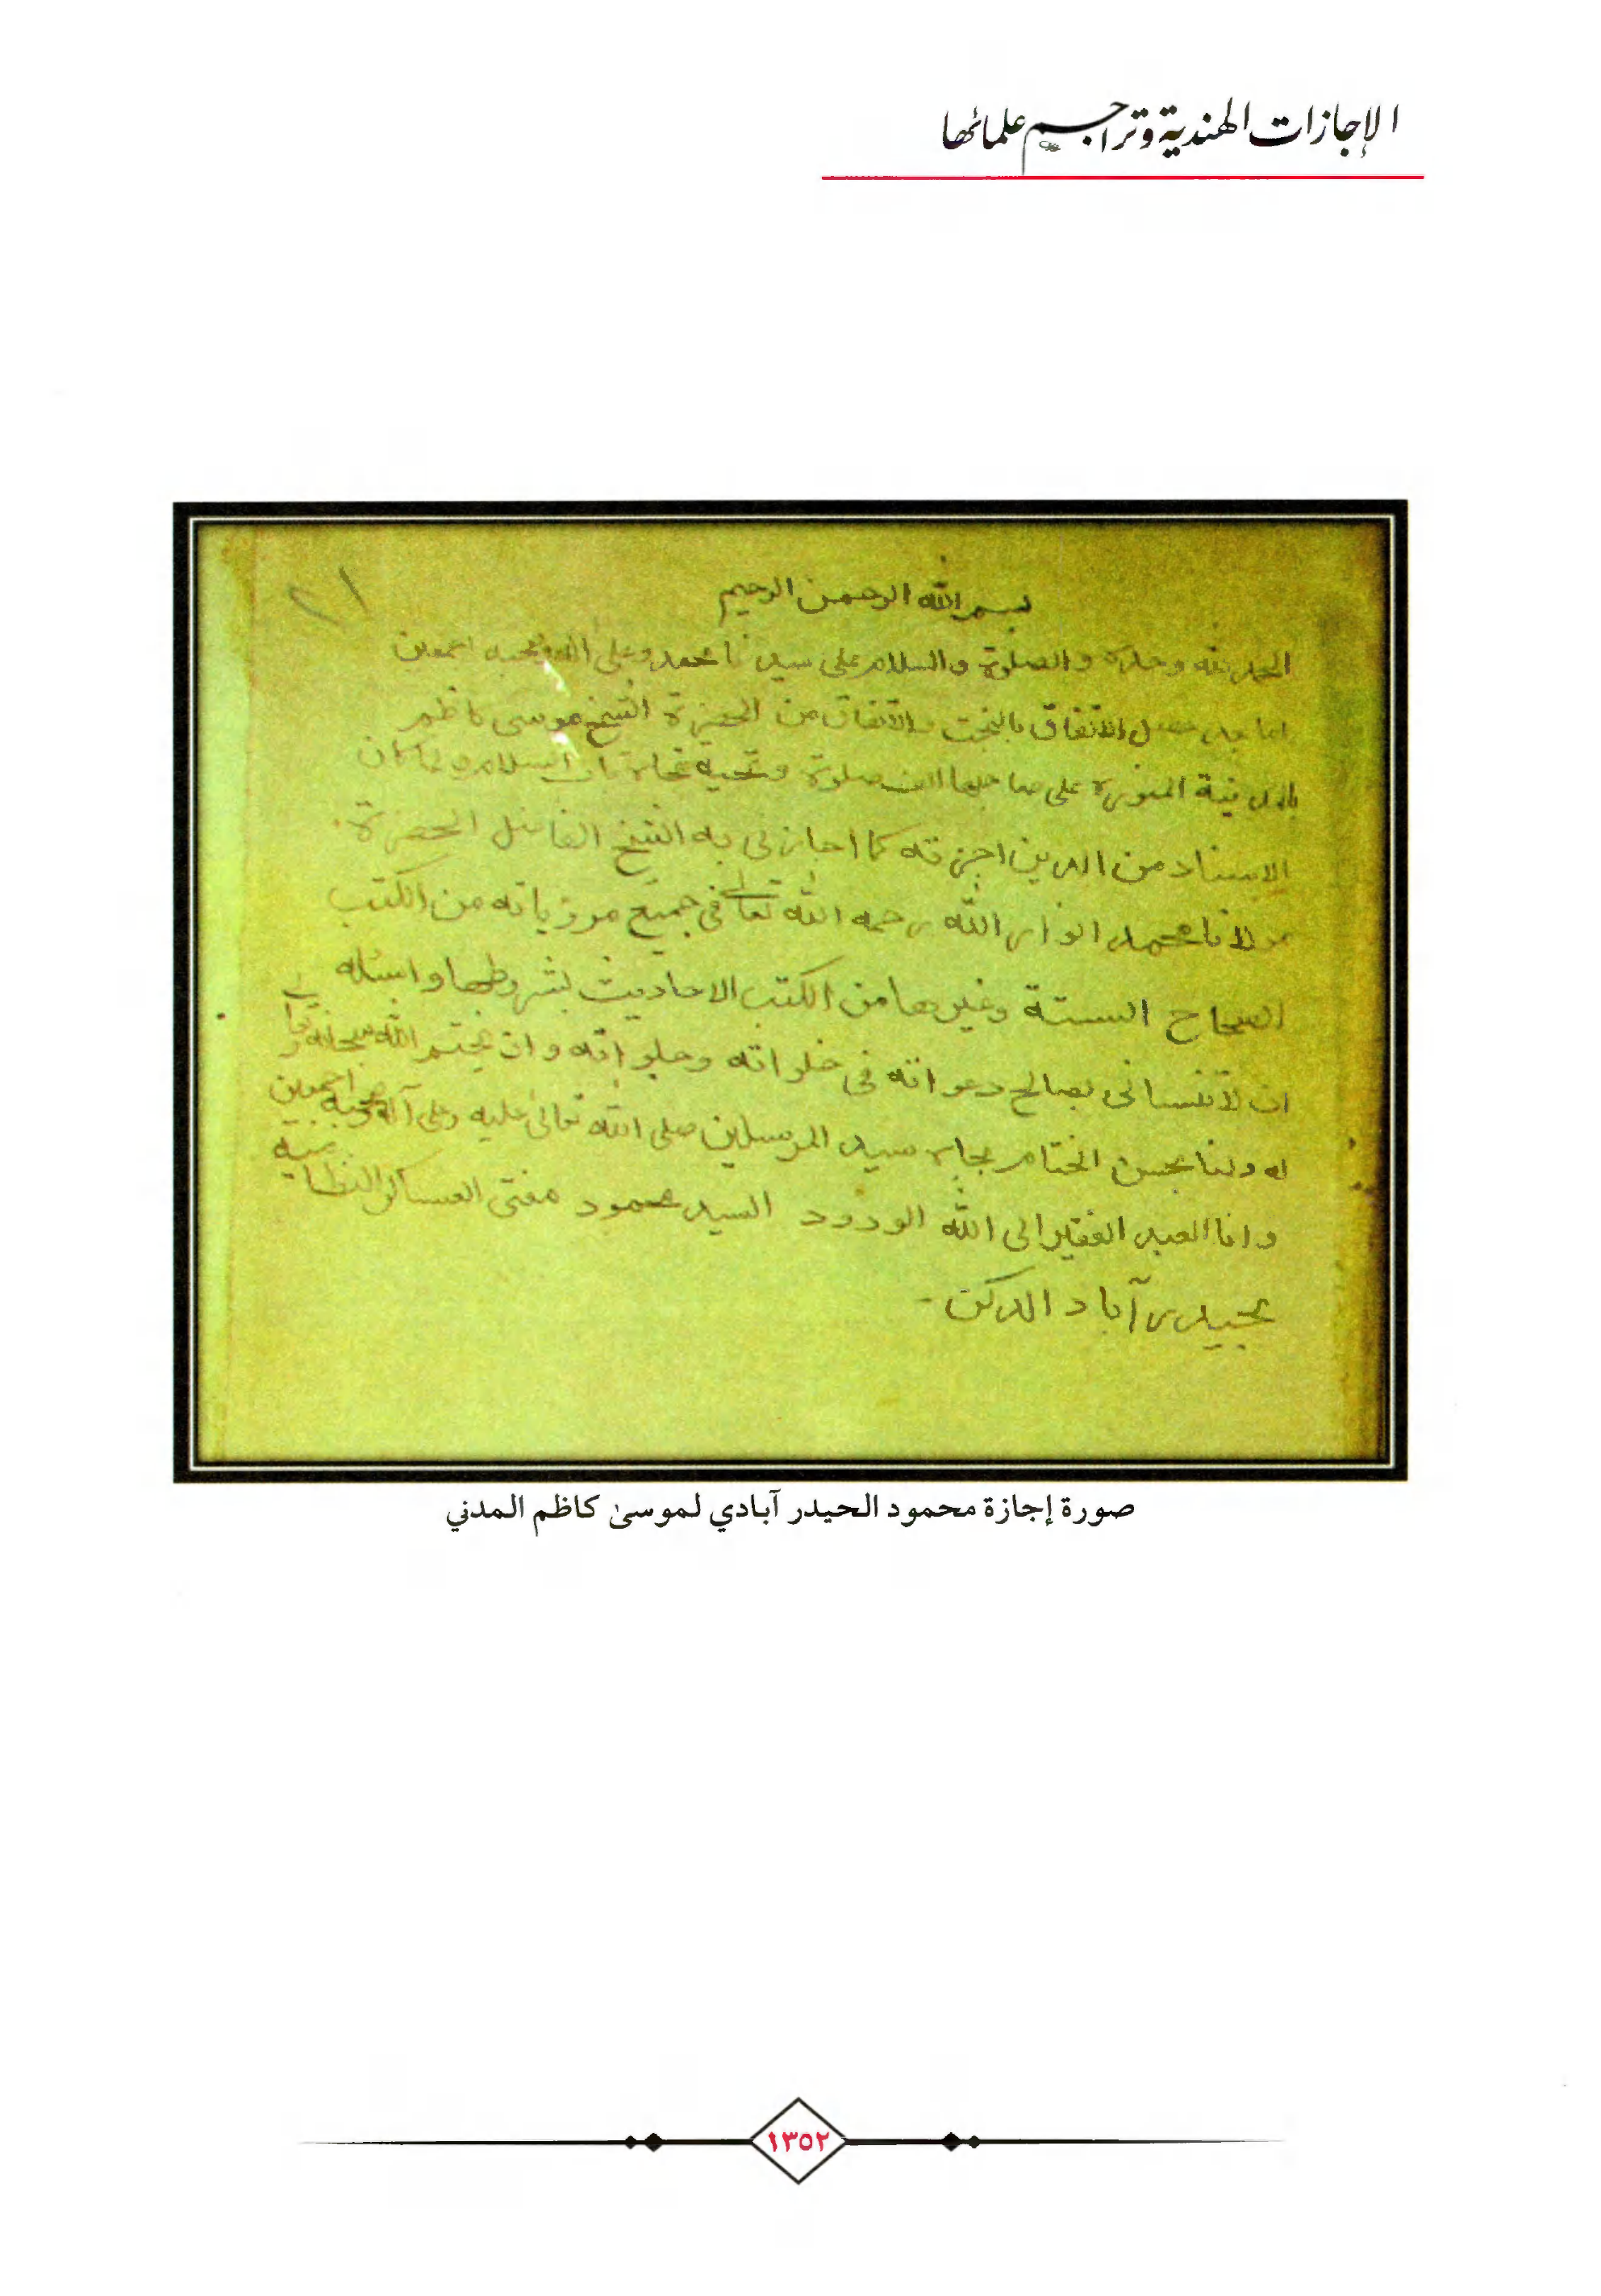 الإجازات الهندية وتراجم علمائها
٢١
بسم الله الرحمن الرحيم
الحمد لله وحده والصلوة والسلام على سيدنا محمد وعلى اله وصحبه اجمعين
اما بعد حصل الاتفاق بالبخت والاتفاق من الحضرة الشيخ موسى كاظم
بالمدينة المنورة على صاحبها الف صلوة وتحية
الاسناد من الدين اجزته كما اجازنى به الشيخ الفاضل الحضرة
مولانا محمد انوار الله رحمه الله تعالى فى جميع مروياته من الكتب
الصحاح الستة وغيرها من الكتب الاحاديث بشروطها واسئله
ان لا تنسانى بصالح دعواته فى خلواته وجلواته وان يختم الله سبحانه وتعالى
له ولنا بحسن الختام بجاه سيد المرسلين صلى الله تعالى عليه وعلى آله وصحبه اجمعين
وانا العبد الفقير الى الله الودود السيد محمود مفتى العساكر النظامية
بحيدرآباد الدكن -
صورة إجازة محمود الحيدر آبادي لموسىٰ كاظم المدني
١٣٥٢